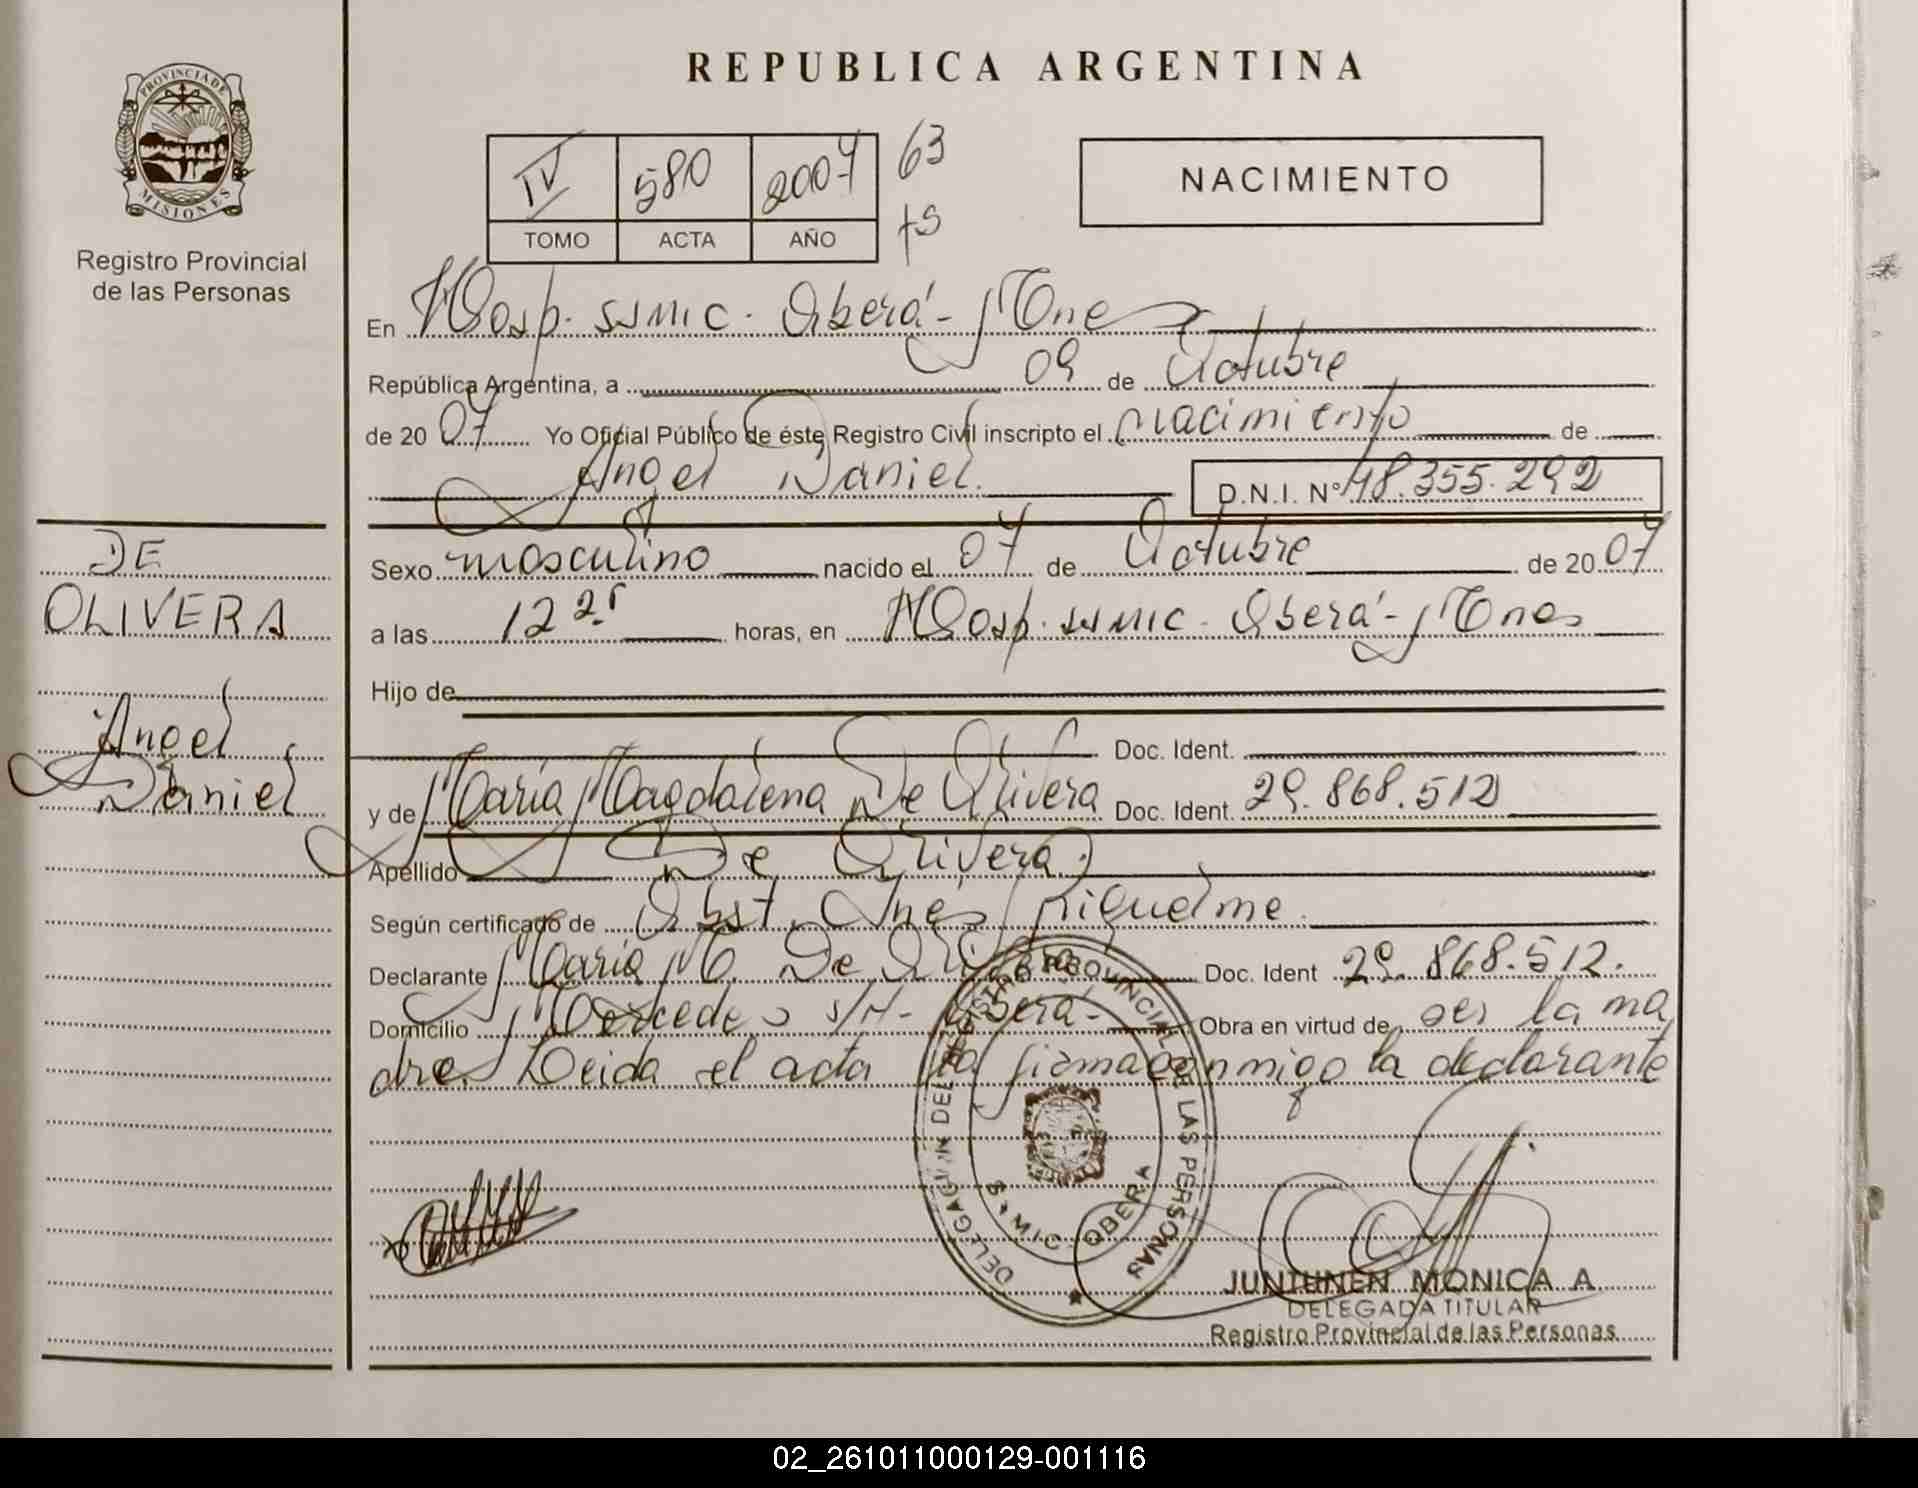 REPUBLICA ARGENTINA
PROVINCIA DE
MISIONES
Registro Provincial
de las Personas
IV 580 2007 63
TOMO ACTA AÑO
NACIMIENTO
En Hosp. SSMIC. Oberá - Mnes
República Argentina, a 09 de Octubre
de 2007 Yo Oficial Público de éste Registro Civil inscripto el nacimiento de
Angel Daniel. D.N.I. Nº 48.355.292
DE
OLIVERA
Angel
Daniel
Sexo masculino nacido el 07 de Octubre de 2007
a las 12 horas, en Hosp. SSMIC. Oberá - Mnes
Hijo de
Doc. Ident.
y de María Magdalena De Olivera Doc. Ident. 29.868.512
Apellido De Olivera
Según certificado de Obst. Inés Riquelme.
Declarante María M. De Olivera Doc. Ident 29.868.512.
Domicilio Mercedes S/N - Oberá - Obra en virtud de ser la ma
dre. Leida el acta la firma conmigo la declarante
DELEGACION DEL REGISTRO PROVINCIAL DE LAS PERSONAS
MIC - OBERA
JUNTUNEN MONICA A
DELEGADA TITULAR
Registro Provincial de las Personas
02_261011000129-001116